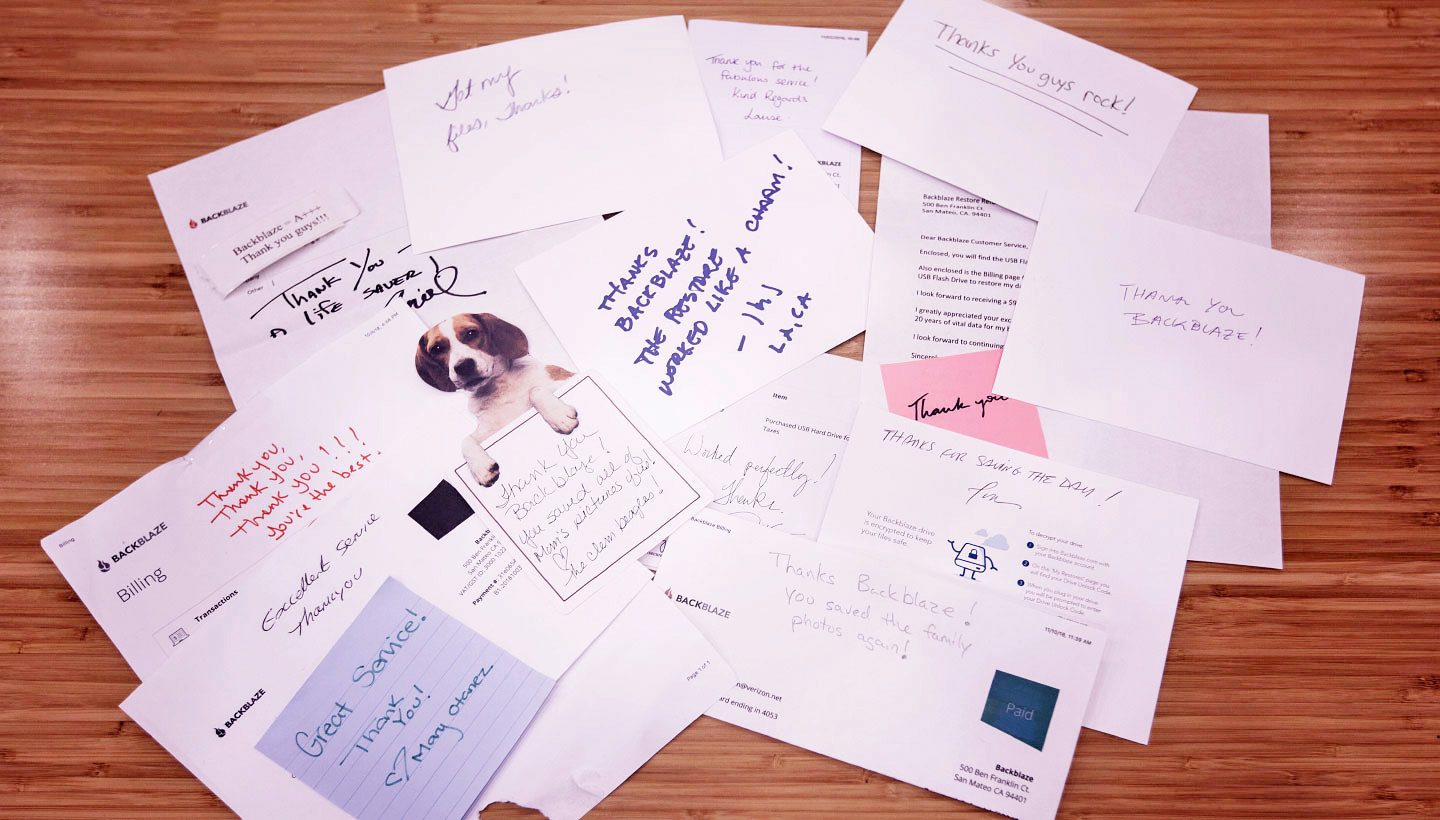 Got my
files, Thanks!
11/02/2018, 16:49
Thank you for the
fabulous service!
Kind Regards
Louise
Thanks You guys rock!
BACKBLAZE
Backblaze = A+++
Thank you guys!!!
Other
Thank You -
A life saver!
THANKS
BACKBLAZE!
THE RESTORE
WORKED LIKE A CHARM!
- JHJ
LA, CA
KBLAZE
n Ct.
Backblaze Restore Re
500 Ben Franklin Ct.
San Mateo, CA. 94401
Dear Backblaze Customer Service,
Enclosed, you will find the USB Fl
Also enclosed is the Billing page f
USB Flash Drive to restore my d
I look forward to receiving a $9
I greatly appreciated your exc
20 years of vital data for my
I look forward to continuing
Sincerel
Thank you
THANK YOU
BACKBLAZE!
Thank you,
Thank you,
Thank you!!!
You're the best.
Billing
BACKBLAZE
Billing
Transactions
Excellent Service
Thank you
Backb
500 Ben Frankli
San Mateo CA
Payment #:
Thank You
Backblaze!
You saved all of
Mom's pictures of us!
The clem beagles!
Item
Purchased USB Hard Drive fo
Taxes
Worked perfectly!
Thanks,
Backblaze Billing
THANKS FOR SAVING THE DAY!
Your Backblaze drive
is encrypted to keep
your files safe.
To decrypt your drive:
1 Sign into Backblaze.com with
your Backblaze account.
2 On the "My Restores" page you
will find your Drive Unlock Code.
3 When you plug in your drive
you will be prompted to enter
your Drive Unlock Code.
BACKBLAZE
Great Service!
Thank
You!
Mary Otanez
BACKBLAZE
Page 1 of 1
Thanks Backblaze!
You saved the family
photos again!
11/10/18, 11:39 AM
n@verizon.net
ard ending in 4053
Paid
Backblaze
500 Ben Franklin Ct.
San Mateo CA 94401